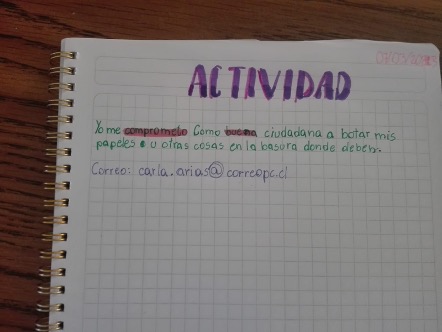 ACTIVIDAD
Yo me comprometo Como buena ciudadana a botar mis
papeles o u otras cosas en la basura donde deben.
Correo: carla.arias@correopc.cl